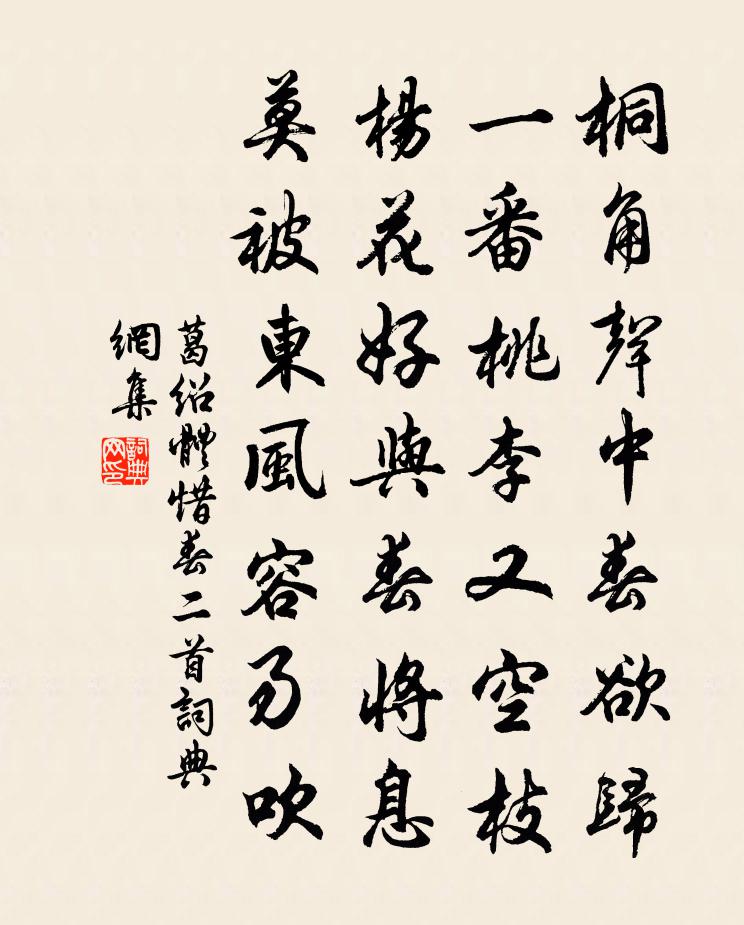 桐角聲中春欲歸
一番桃李又空枝
楊花好與春將息
莫被東風容易吹
葛紹體惜春二首詞典
網集
詞典
网印